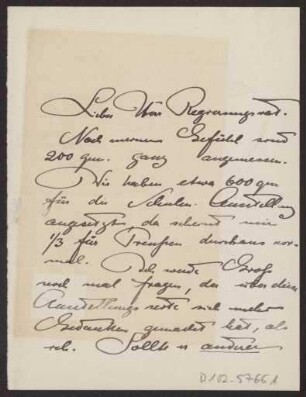 Lieber Herr Regierungsrat.
Nach meinem Gefühl sind
200 qm. ganz angemessen.
Wir haben etwa 600 qm
für die Schulen-Ausstellung
angesetzt, da scheint mir
1/3 für Preußen durchaus nor-
mal. Ich werde Groß
noch mal fragen, der über diese
Ausstellungs sich mehr
Gedanken gemacht hat, als
ich. Sollte er anderer
D102-57661